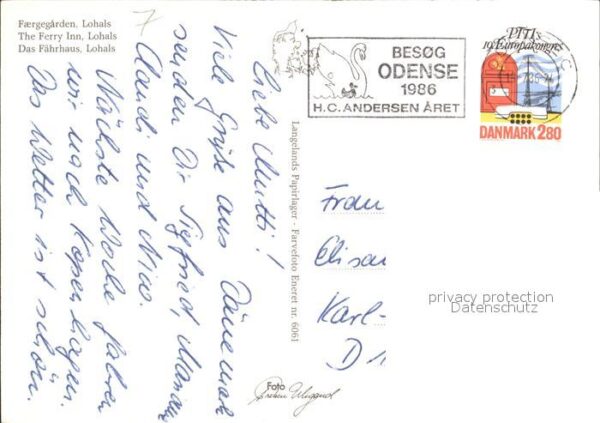 Færgegården, Lohals
The Ferry Inn, Lohals
Das Fährhaus, Lohals
7
Liebe Mutti!
Viele Grüße aus Dänemark
senden Dir Siegfried,
Claudi und Nico.
Nächste Woche fahren
wir nach Kopenhagen.
Das Wetter ist schön.
Langelands Papirlager - Farvefoto Eneret nr. 6061
BESØG
ODENSE
1986
H.C. ANDERSEN ÅRET
PTTI's
19. Europakongres
DANMARK 2.80
Frau
Karl-
D
privacy protection
Datenschutz
Foto